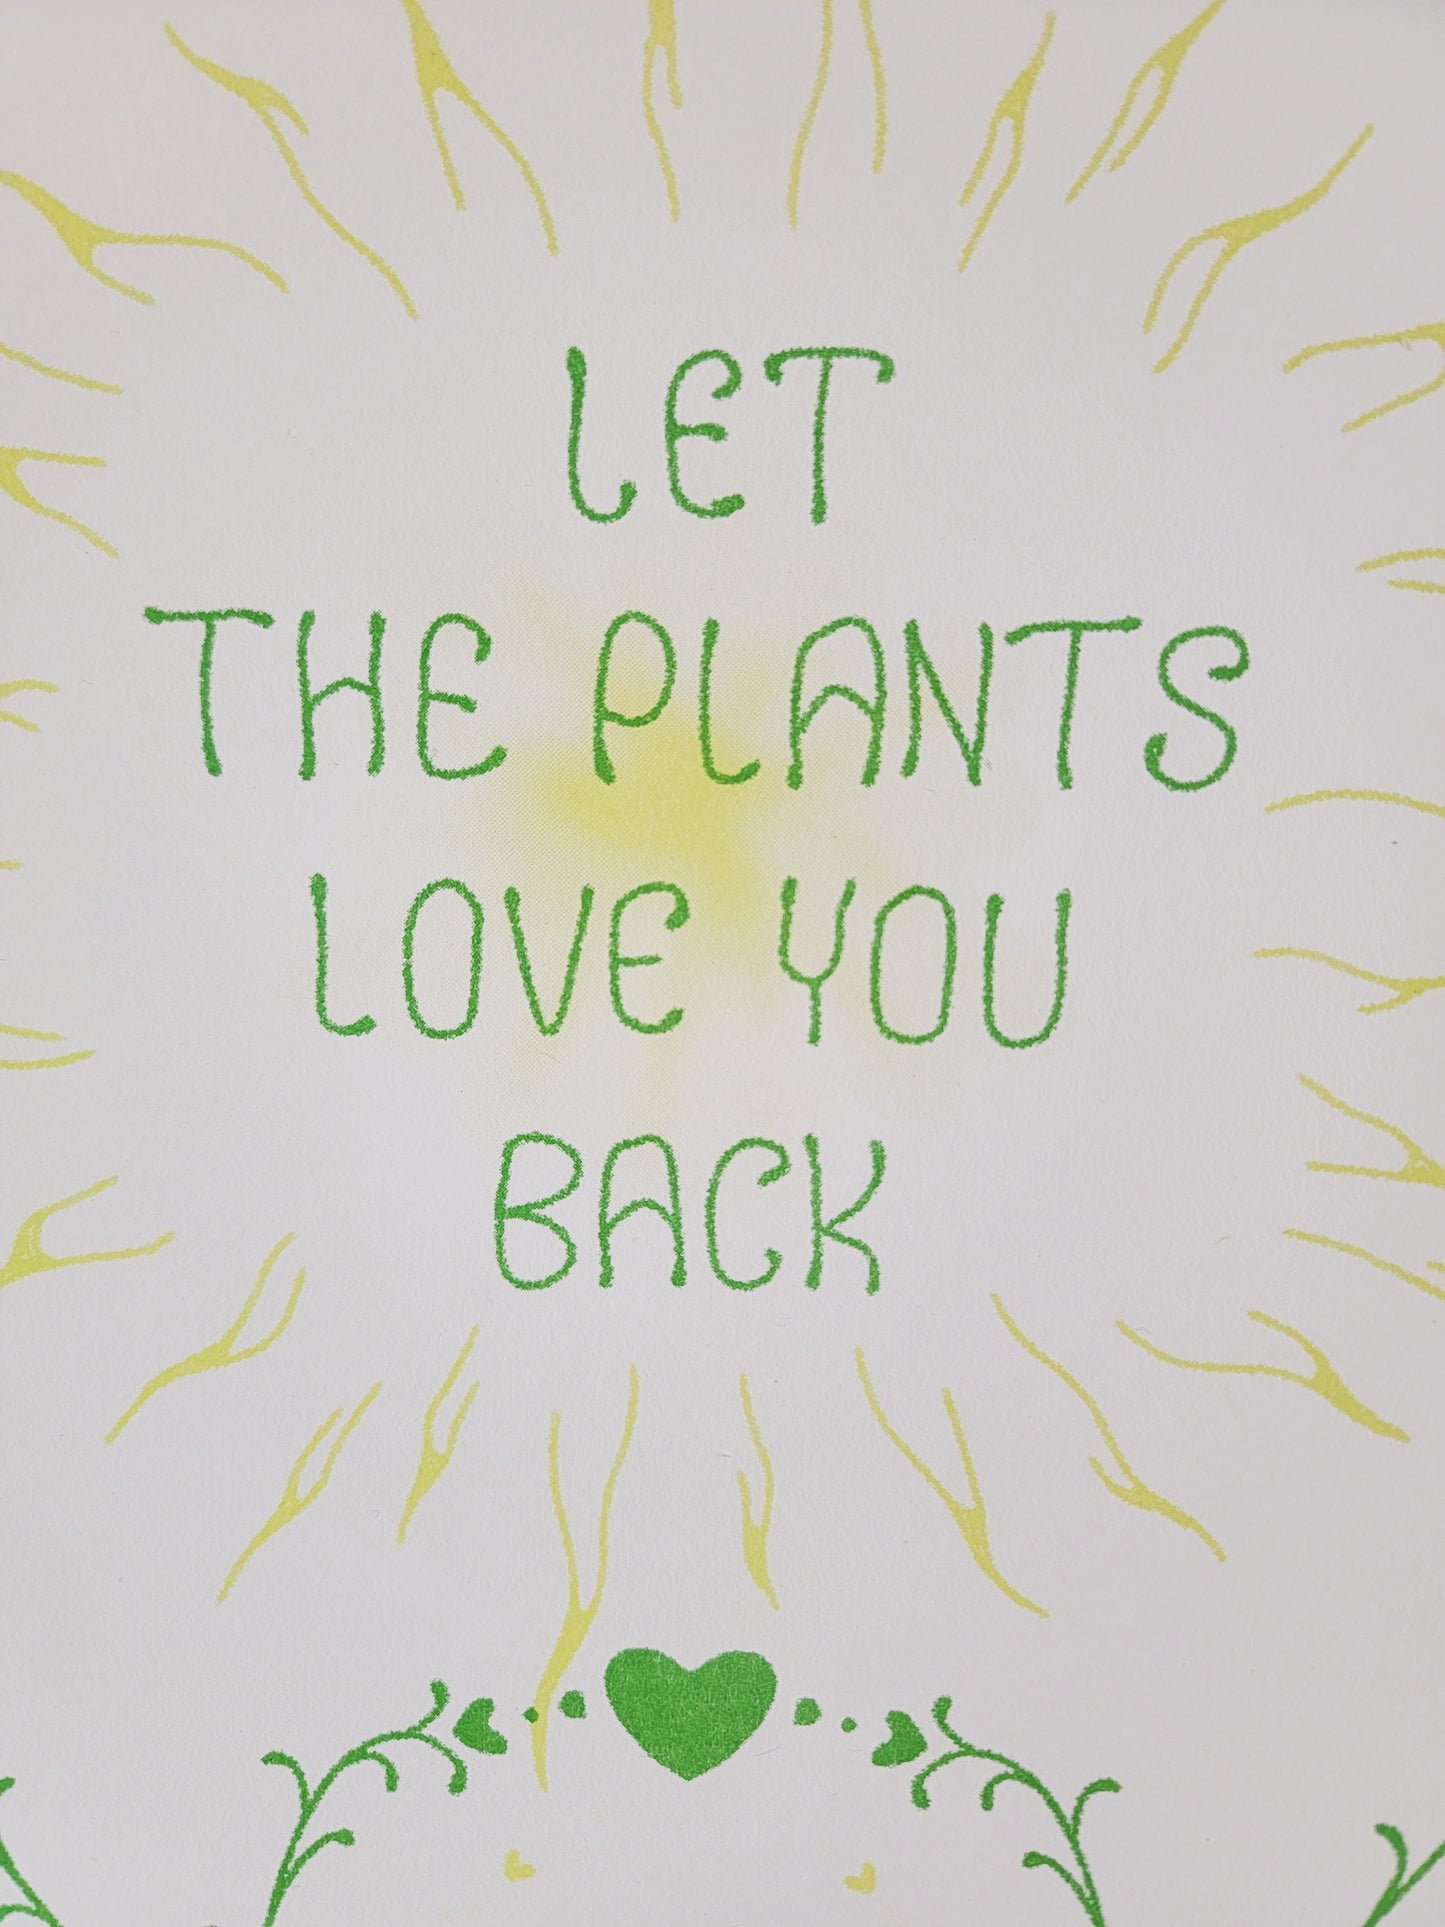 LET
THE PLANTS
LOVE YOU
BACK